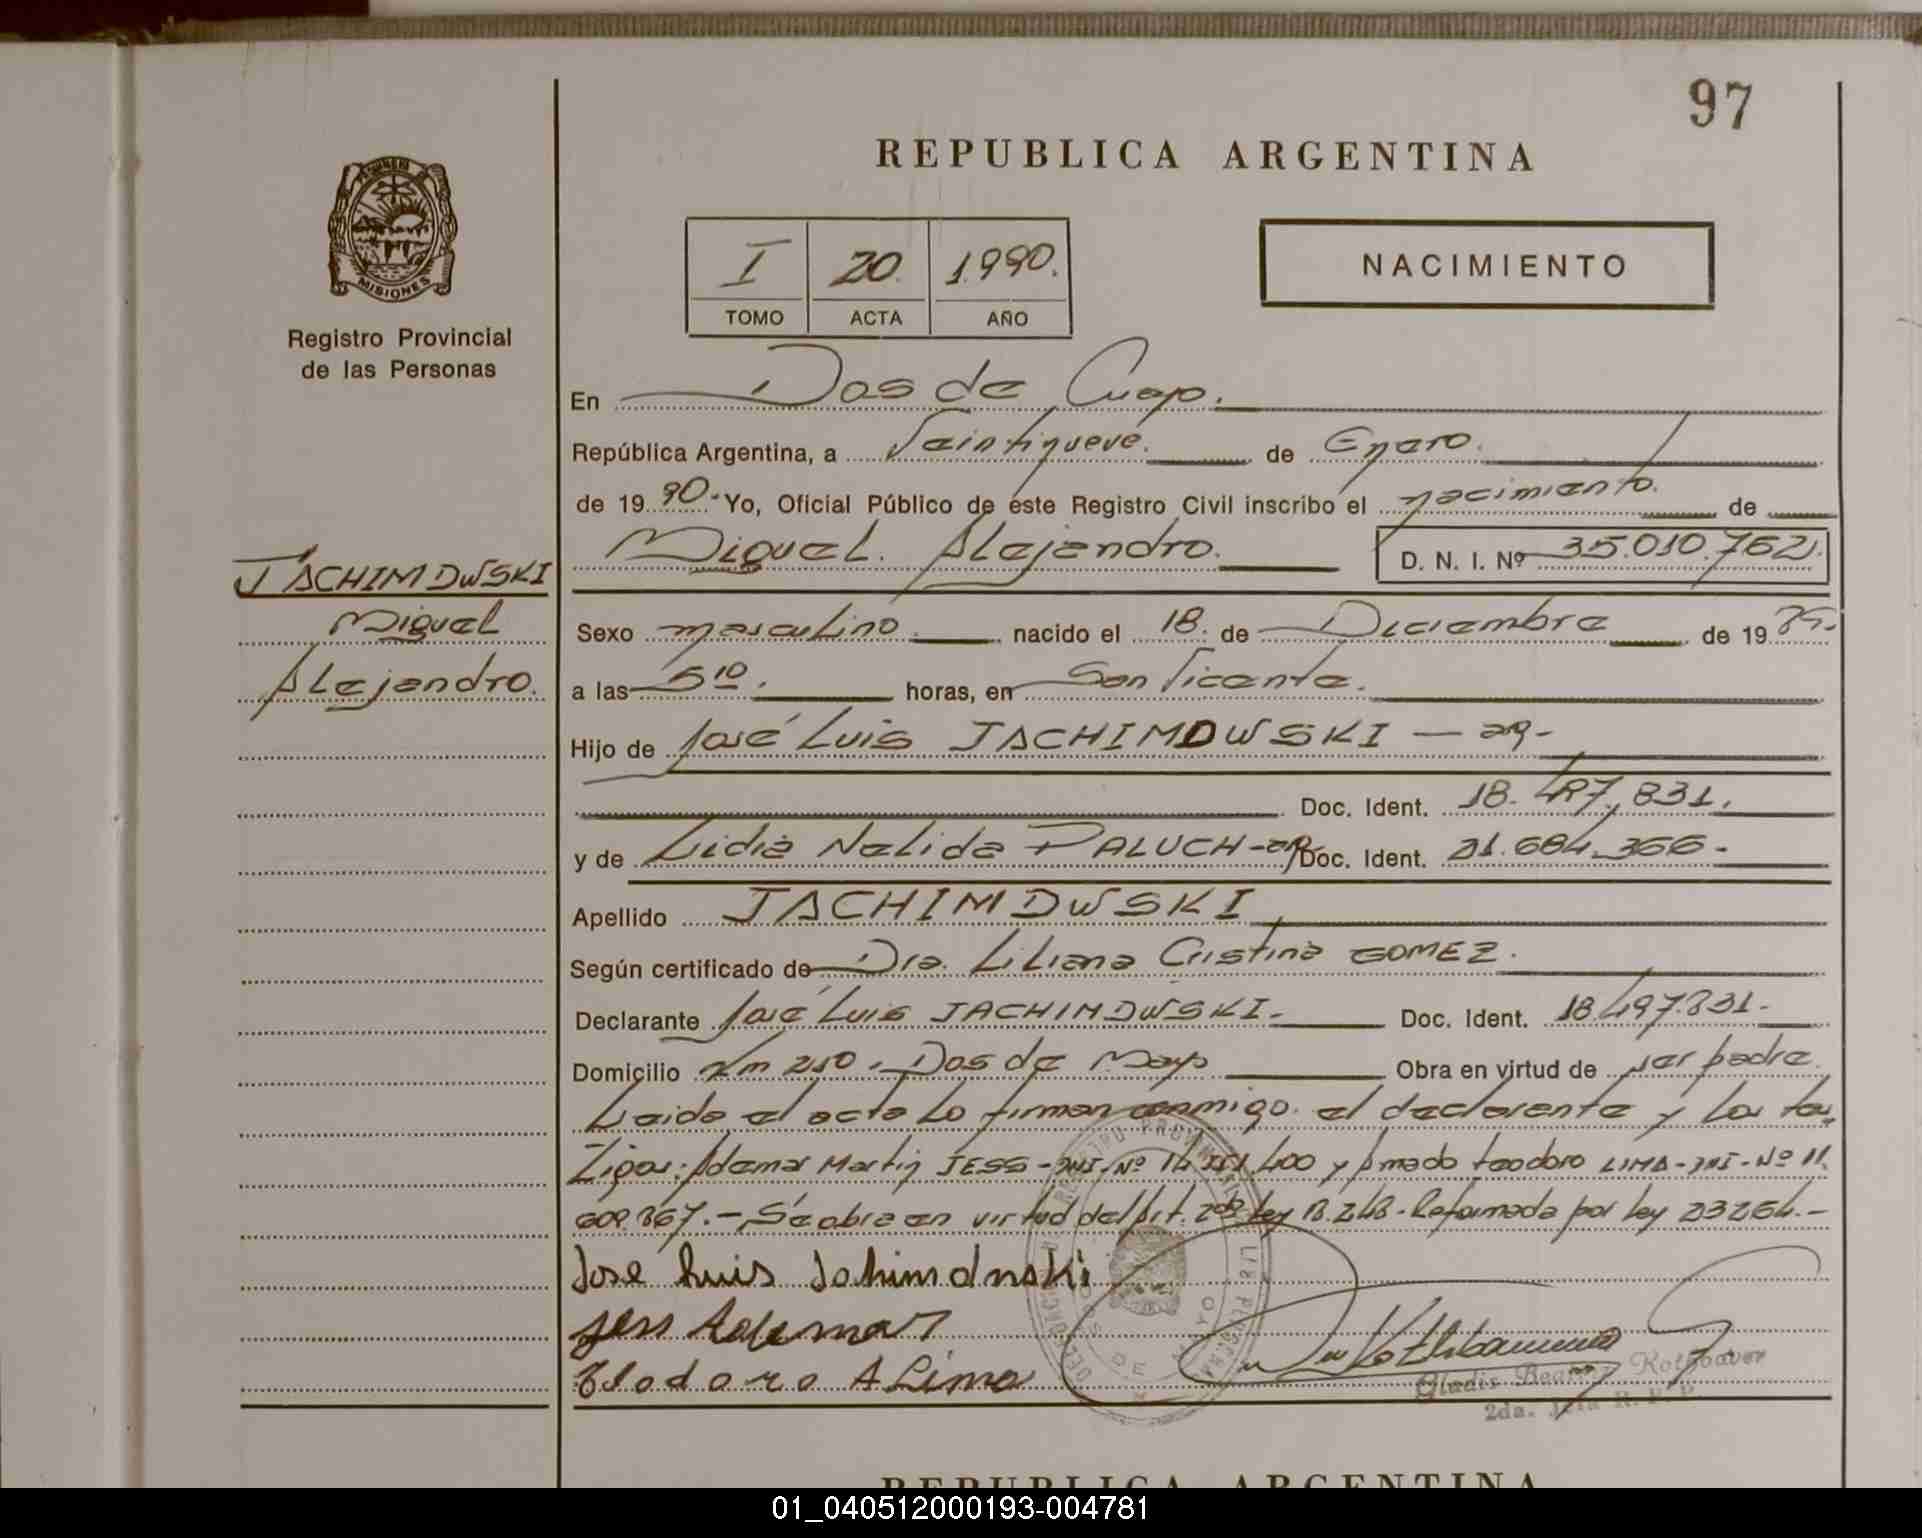 97
REPUBLICA ARGENTINA
MISIONES
Registro Provincial
de las Personas
I 20. 1.990.
TOMO ACTA AÑO
NACIMIENTO
En Dos de
República Argentina, a Veintinueve. de Enero.
de 19 90.- Yo, Oficial Público de este Registro Civil inscribo el nacimiento. de
Miguel. Alejandro. D. N. I. Nº 35.010.762.
JACHIMOWSKI
Miguel
Alejandro.
Sexo masculino. nacido el 18. de Diciembre de 19 89.
a las 5 10. horas, en San Vicente.
Hijo de José Luis JACHIMOWSKI - ar-
Doc. Ident. 18.497.831.
y de Lidia Nelida PALUCH-ar- Doc. Ident. 21.684.366-
Apellido JACHIMOWSKI
Según certificado de Dra. Liliana Cristina GOMEZ.
Declarante José Luis JACHIMOWSKI- Doc. Ident. 18.497.831-
Domicilio Km 210. Dos de Mayo Obra en virtud de ser padre.
Leida el acta lo firman conmigo. el declarante y los tes-
tigos: Ademar Martin JESS-DNI-Nº 14. .400 y Amado teodoro LIMA-DNI-Nº 11.
609.867.- Se abre en virtud del Art. ley 18.248-Reformada por ley 23264.-
Jose Luis Jachimowski
Jess Ademar
Teodoro A Lima
Gladis Beatriz Kothbauer
2da. Jefa R. P. P.
REPUBLICA ARGENTINA
01_040512000193-004781